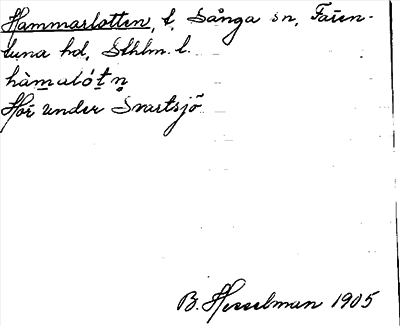 Hammarlotten, t. Sånga sn, Fären-
tuna hd, Sthlm. l.
hàmaló̀tn̥
Hör under Svartsjö
B. Hesselman 1905